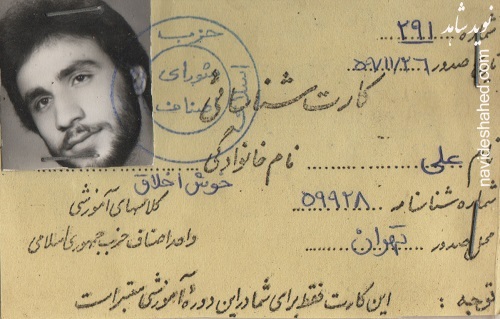 شماره ۲۹۱
تاریخ صدور ۵۹/۱۱/۲۶
حزب
شورای
اصناف
کارت شناسائی
نام علی نام خانوادگی خوش اخلاق
شماره شناسنامه ۵۹۹۲۸
کلاسهای آموزشی
محل صدور تهران
واحد اصناف حزب جمهوری اسلامی
توجه : این کارت فقط برای شما در این دورهٔ آموزشی معتبر است
نوید شاهد
navideshahed.com